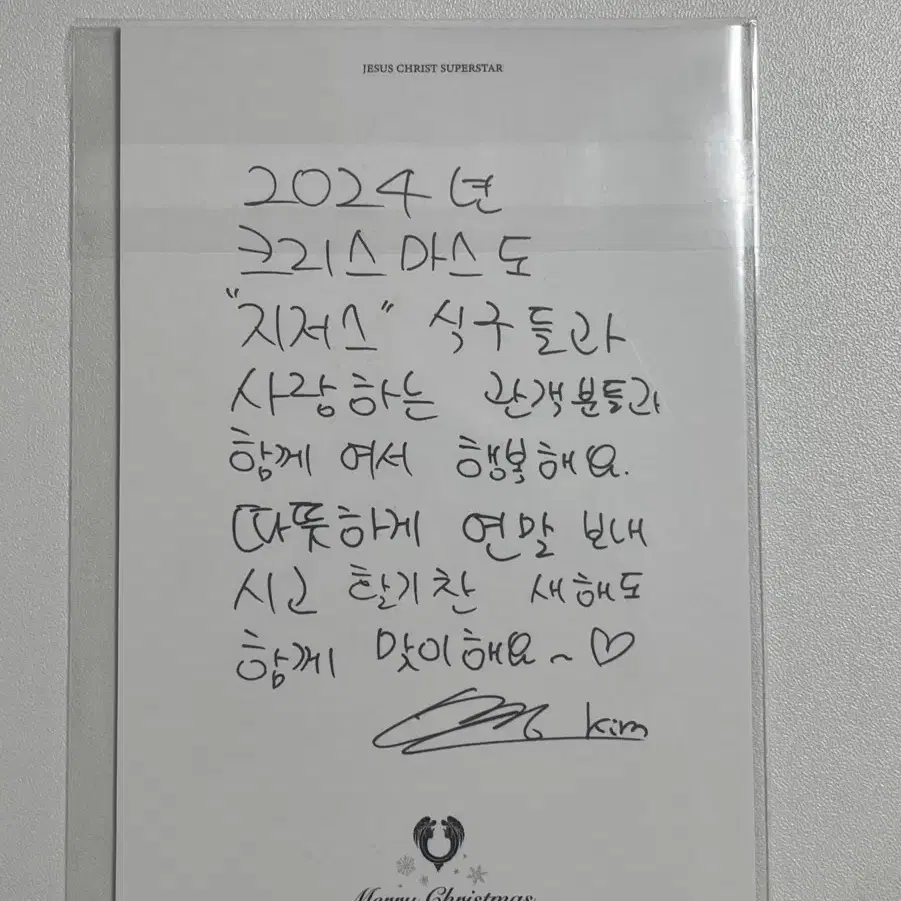 JESUS CHRIST SUPERSTAR
2024년
크리스마스도
"지저스" 식구들과
사랑하는 관객분들과
함께 여서 행복해요.
따뜻하게 연말 보내
시고 활기찬 새해도
함께 맞이해요~♡
Kim
Merry Christmas